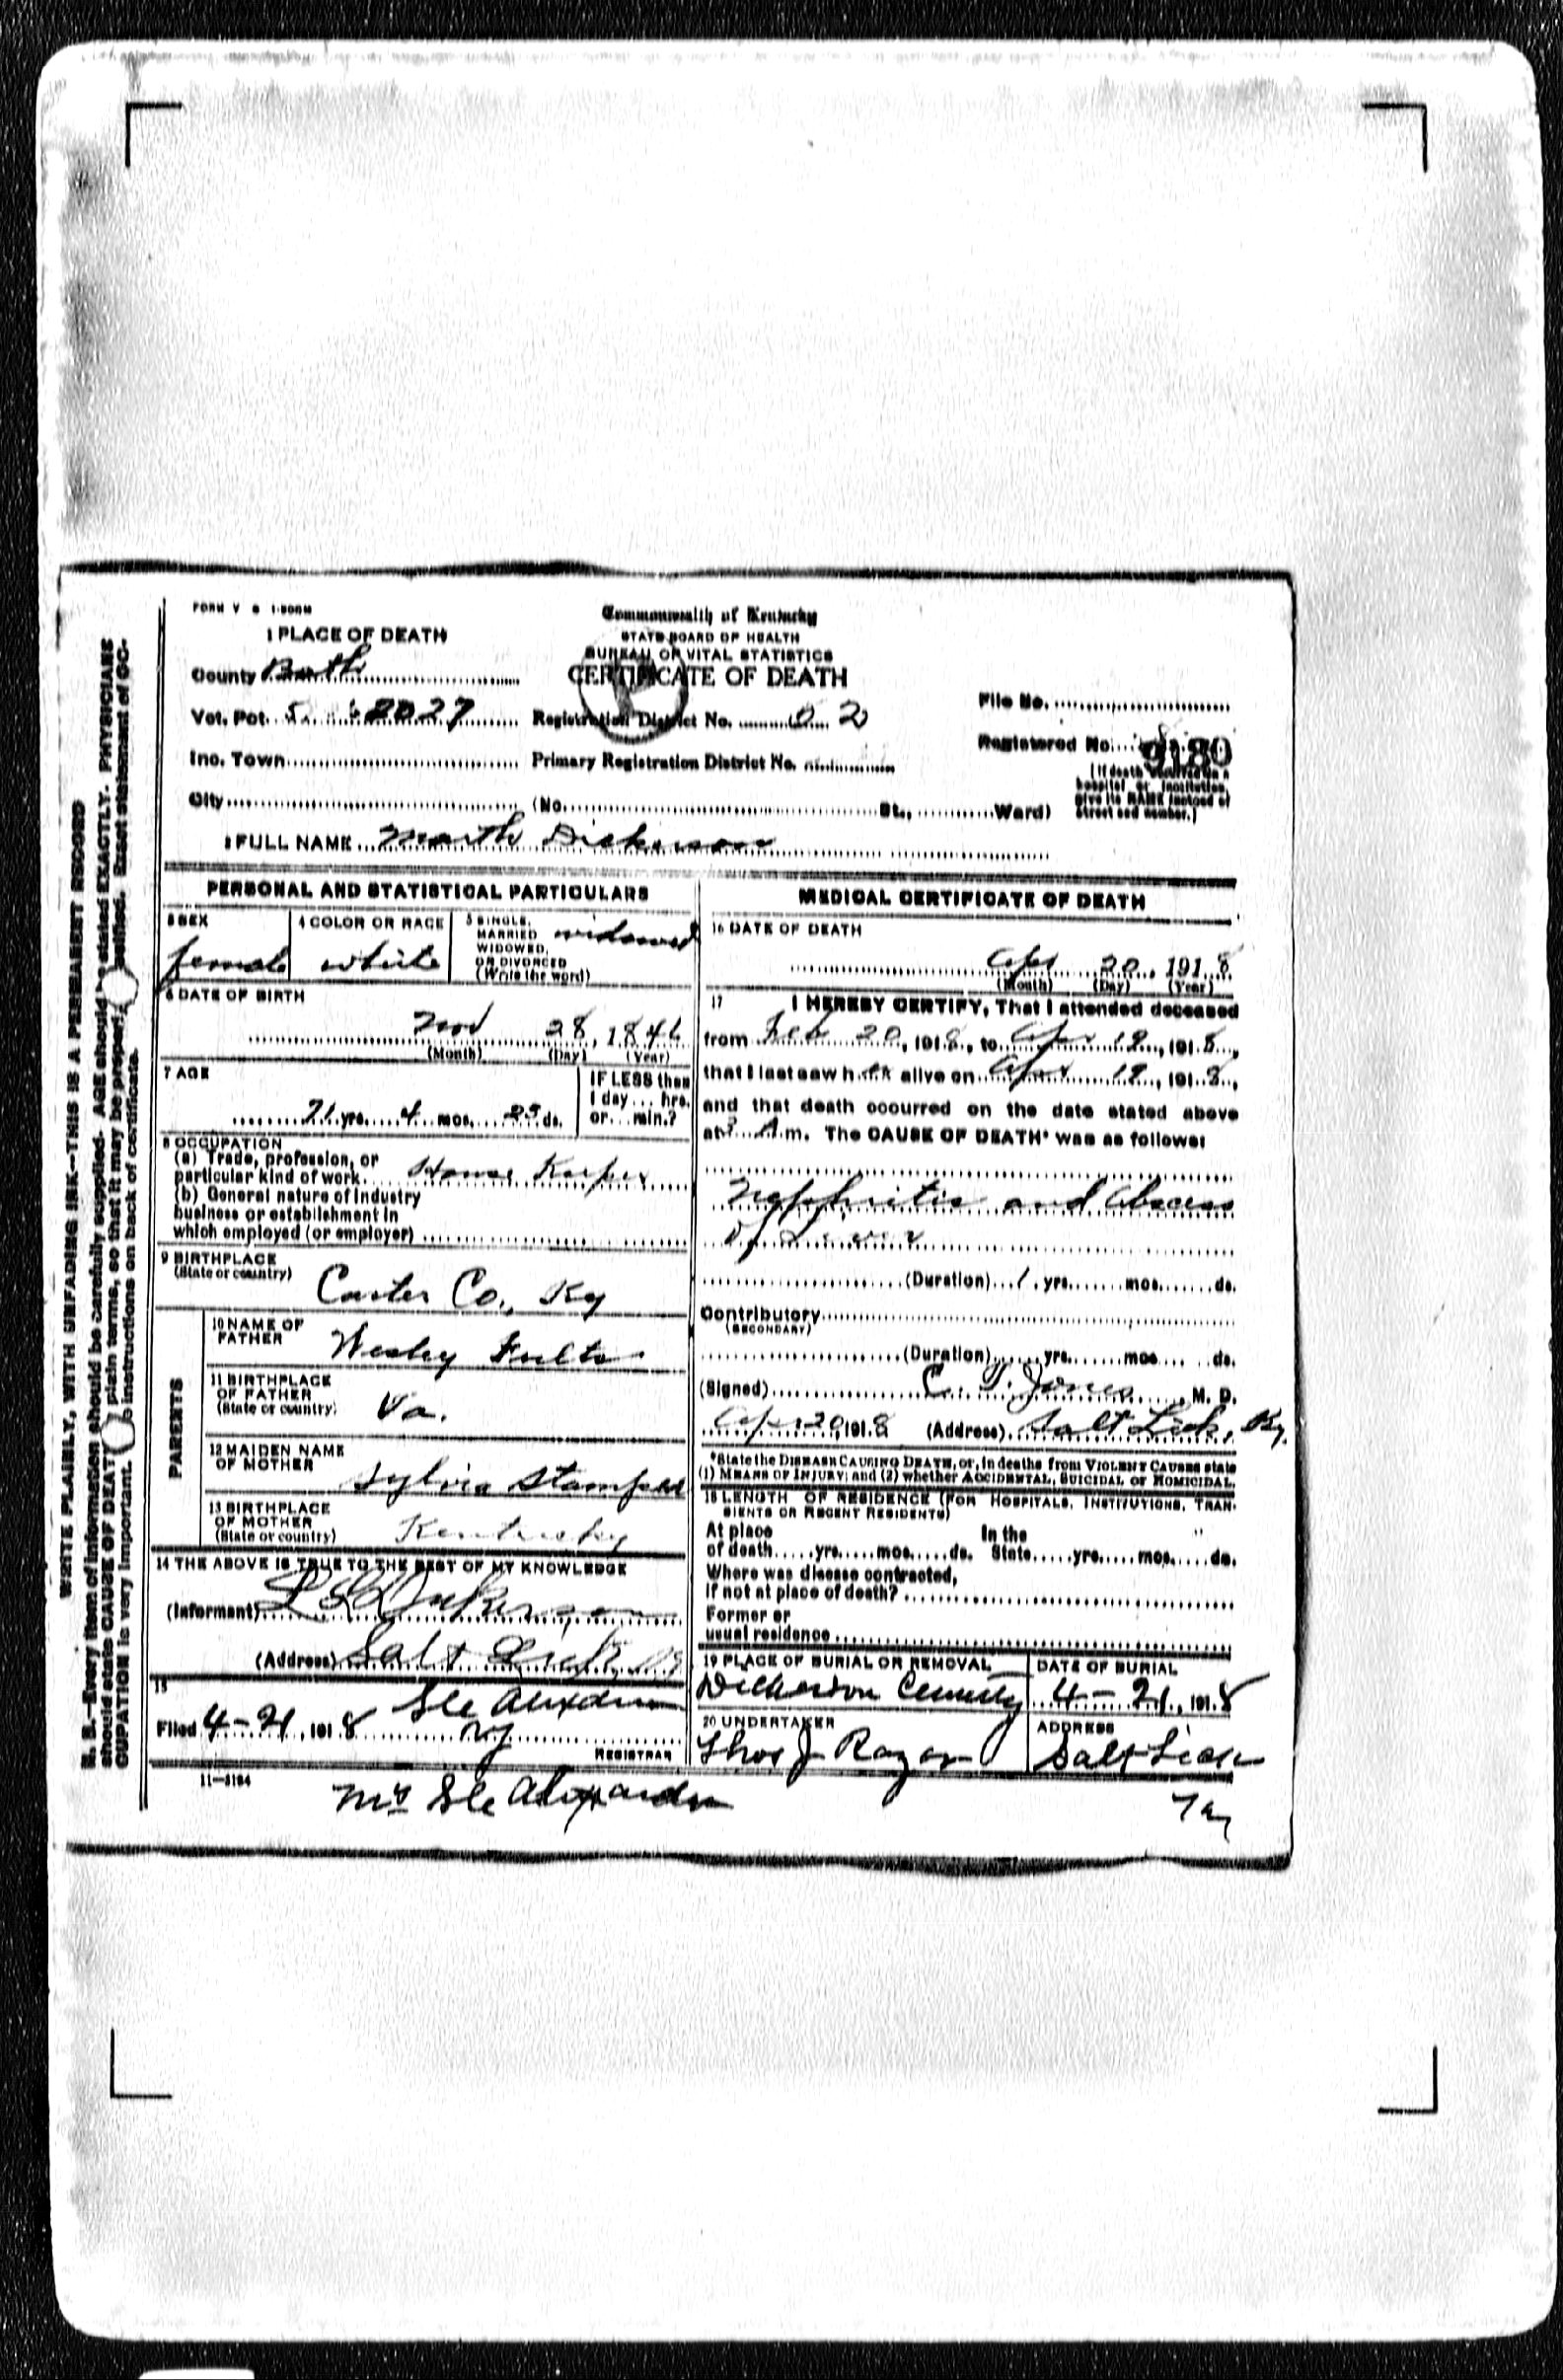 FORM V S 1-50M
Commonwealth of Kentucky
STATE BOARD OF HEALTH
BUREAU OF VITAL STATISTICS
CERTIFICATE OF DEATH
1 PLACE OF DEATH
County Bath
Vot. Pct. 5
Registration District No.
Inc. Town
Primary Registration District No.
City (No. St., Ward)
File No.
Registered No. 9180
(If death occurred in a
hospital or institution,
give its NAME instead of
street and number.)
2 FULL NAME Marth Dickerson
PERSONAL AND STATISTICAL PARTICULARS
3 SEX
female
4 COLOR OR RACE
white
5 SINGLE,
MARRIED
WIDOWED,
OR DIVORCED
(Write the word)
widowed
6 DATE OF BIRTH
Nov 28, 1846
(Month) (Day) (Year)
7 AGE
71 yrs. 4 mos. 23 ds.
IF LESS than
1 day ... hrs.
or ... min.?
8 OCCUPATION
(a) Trade, profession, or
particular kind of work. House Keeper
(b) General nature of industry
business or establishment in
which employed (or employer)
9 BIRTHPLACE
(State or country)
Carter Co., Ky
PARENTS
10 NAME OF
FATHER
Wesley Fults
11 BIRTHPLACE
OF FATHER
(State or country)
Va.
12 MAIDEN NAME
OF MOTHER
Sylvia Stamper
13 BIRTHPLACE
OF MOTHER
(State or country)
Kentucky
14 THE ABOVE IS TRUE TO THE BEST OF MY KNOWLEDGE
(Informant) Dickerson
(Address) Salt Lick, Ky
15
Filed 4-21, 1918
REGISTRAR
11-3184
MEDICAL CERTIFICATE OF DEATH
16 DATE OF DEATH
Apr 20, 1918
(Month) (Day) (Year)
17 I HEREBY CERTIFY, That I attended deceased
from Feb 20, 1918, to Apr 19, 1918,
that I last saw her alive on Apr 19, 1918,
and that death occurred on the date stated above
at 3 A.m. The CAUSE OF DEATH* was as follows:
Nephritis and Abscess
of Liver
(Duration) 1 yrs. mos. ds.
Contributory
(SECONDARY)
(Duration) yrs. mos. ds.
(Signed) C. T. Jones, M. D.
Apr 20, 1918 (Address) Salt Lick, Ky.
*State the DISEASE CAUSING DEATH, or, in deaths from VIOLENT CAUSES state
(1) MEANS OF INJURY; and (2) whether ACCIDENTAL, SUICIDAL or HOMICIDAL.
18 LENGTH OF RESIDENCE (FOR HOSPITALS, INSTITUTIONS, TRAN-
SIENTS OR RECENT RESIDENTS)
At place In the
of death yrs. mos. ds. State yrs. mos. ds.
Where was disease contracted,
if not at place of death?
Former or
usual residence
19 PLACE OF BURIAL OR REMOVAL
Dickerson Cemetery
DATE OF BURIAL
4-21, 1918
20 UNDERTAKER
Thos J Razor
ADDRESS
Salt Lick
Ky
WRITE PLAINLY, WITH UNFADING INK—THIS IS A PERMANENT RECORD
N. B.—Every item of information should be carefully supplied. AGE should be stated EXACTLY. PHYSICIANS
should state CAUSE OF DEATH in plain terms, so that it may be properly classified. Exact statement of OC-
CUPATION is very important. See instructions on back of certificate.